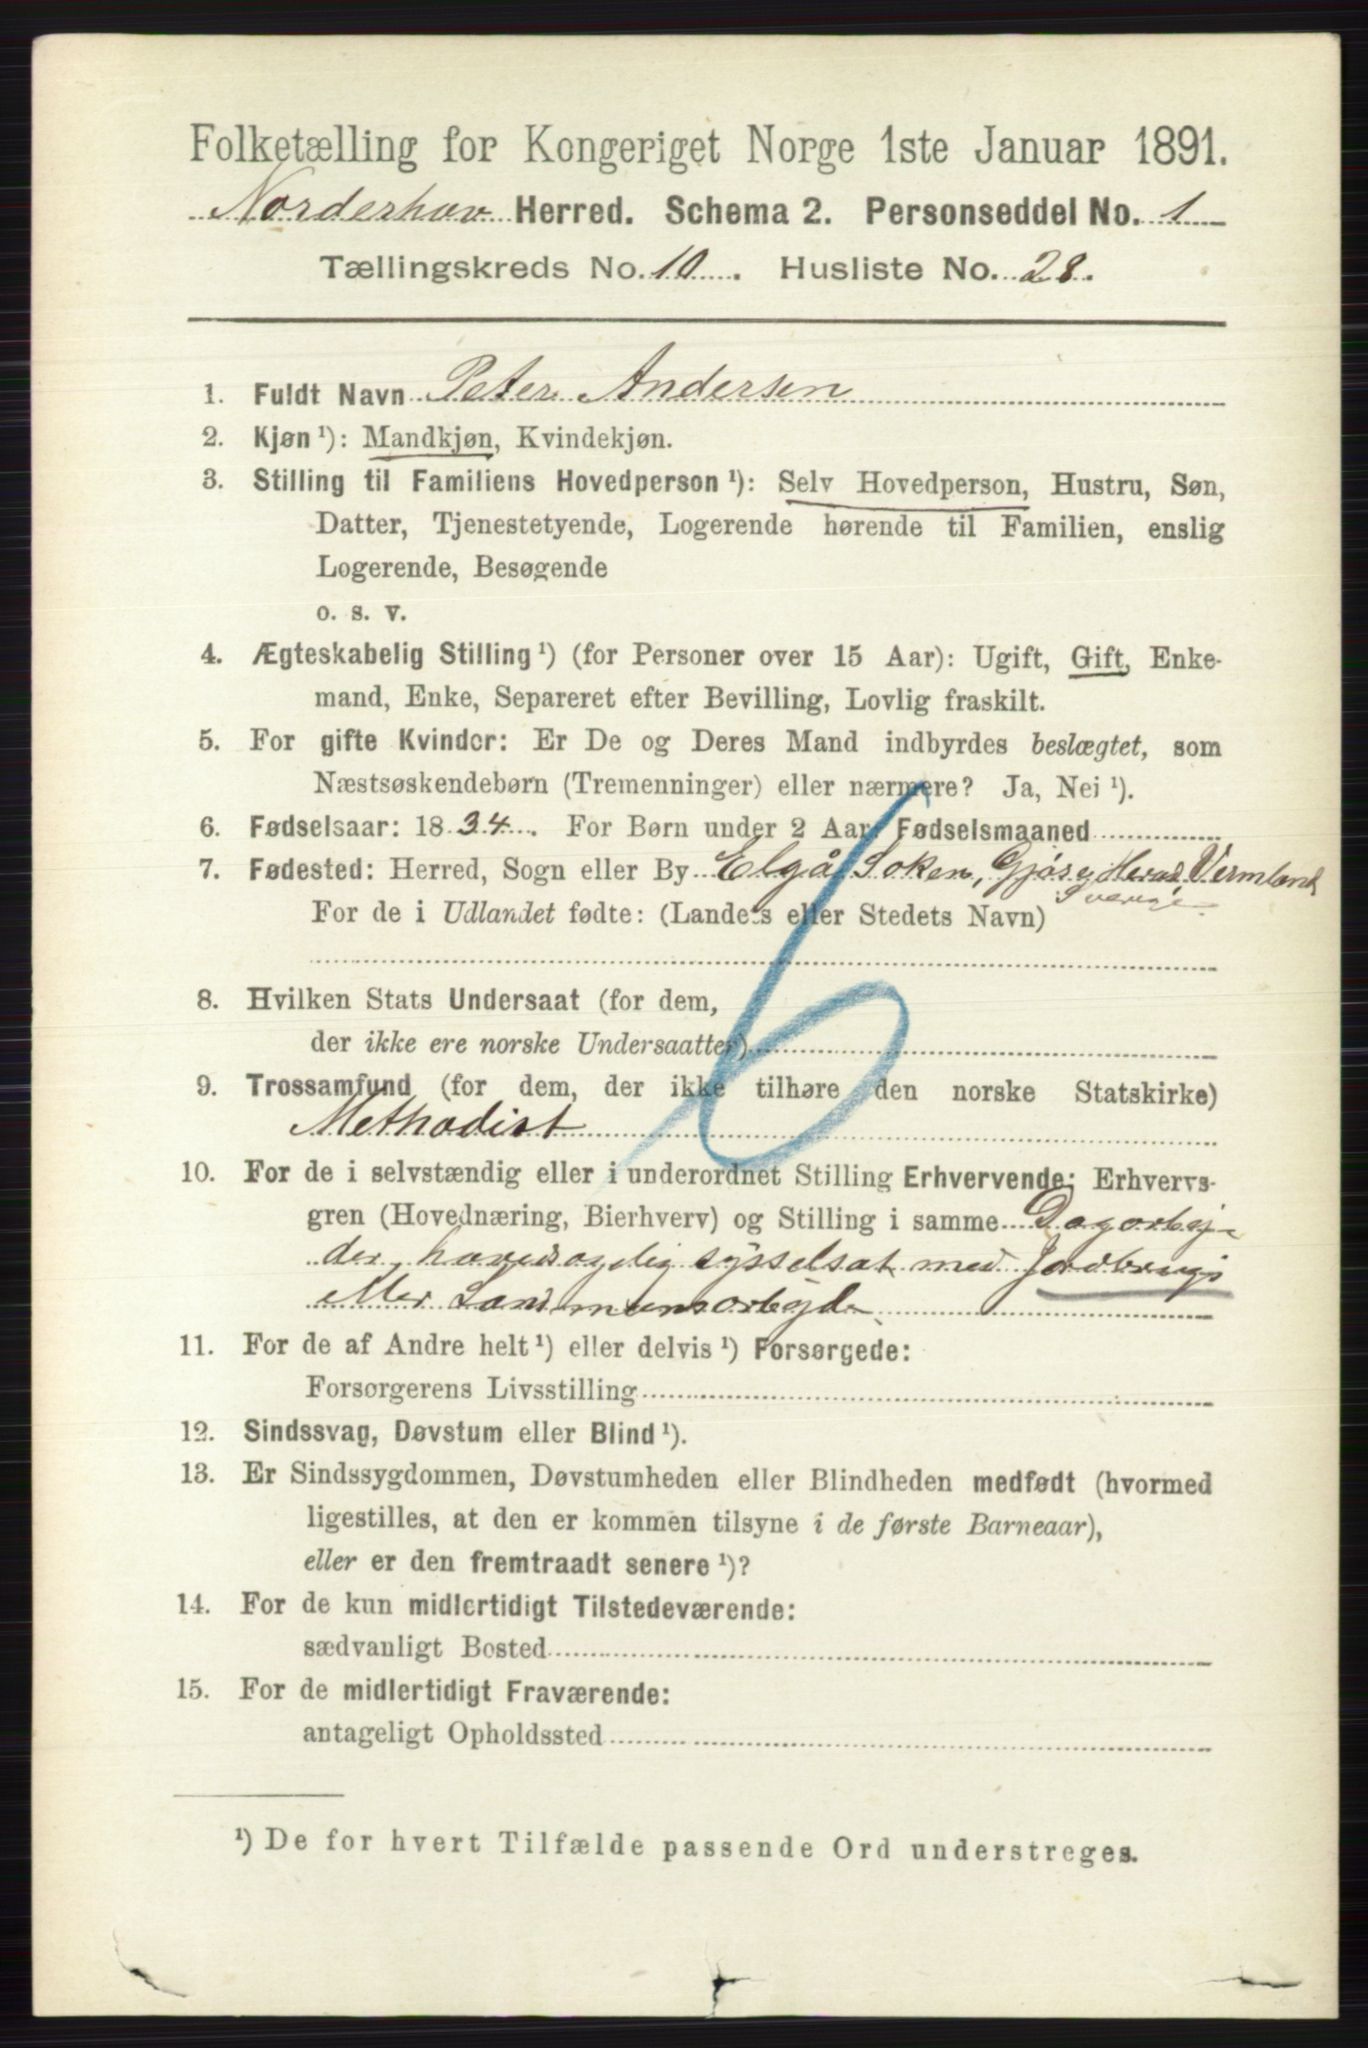 Folketælling for Kongeriget Norge 1ste Januar 1891.
Norderhov Herred. Schema 2. Personseddel No. 1
Tællingskreds No. 10. Husliste No. 28.
1. Fuldt Navn Peter Andersen
2. Kjøn ¹): Mandkjøn, Kvindekjøn.
3. Stilling til Familiens Hovedperson ¹): Selv Hovedperson, Hustru, Søn,
Datter, Tjenestetyende, Logerende hørende til Familien, enslig
Logerende, Besøgende
o. s. v.
4. Ægteskabelig Stilling ¹) (for Personer over 15 Aar): Ugift, Gift, Enke-
mand, Enke, Separeret efter Bevilling, Lovlig fraskilt.
5. For gifte Kvinder: Er De og Deres Mand indbyrdes beslægtet, som
Næstsøskendebørn (Tremenninger) eller nærmere? Ja, Nei ¹).
6. Fødselsaar: 1834. For Børn under 2 Aar: Fødselsmaaned
7. Fødested: Herred, Sogn eller By Elgå Soken, Gjøse Herad, Vermland
Sverige
For de i Udlandet fødte: (Landets eller Stedets Navn)
8. Hvilken Stats Undersaat (for dem,
der ikke ere norske Undersaatter)
6
9. Trossamfund (for dem, der ikke tilhøre den norske Statskirke)
Methodist
10. For de i selvstændig eller i underordnet Stilling Erhvervende: Erhvervs-
gren (Hovednæring, Bierhverv) og Stilling i samme Dagarbej-
der, hovedsagelig sysselsat med Jordbrugs
eller Landmansarbejde
11. For de af Andre helt ¹) eller delvis ¹) Forsørgede:
Forsørgerens Livsstilling
12. Sindssvag, Døvstum eller Blind ¹).
13. Er Sindssygdommen, Døvstumheden eller Blindheden medfødt (hvormed
ligestilles, at den er kommen tilsyne i de første Barneaar),
eller er den fremtraadt senere ¹)?
14. For de kun midlertidigt Tilstedeværende:
sædvanligt Bosted
15. For de midlertidigt Fraværende:
antageligt Opholdssted
¹) De for hvert Tilfælde passende Ord understreges.